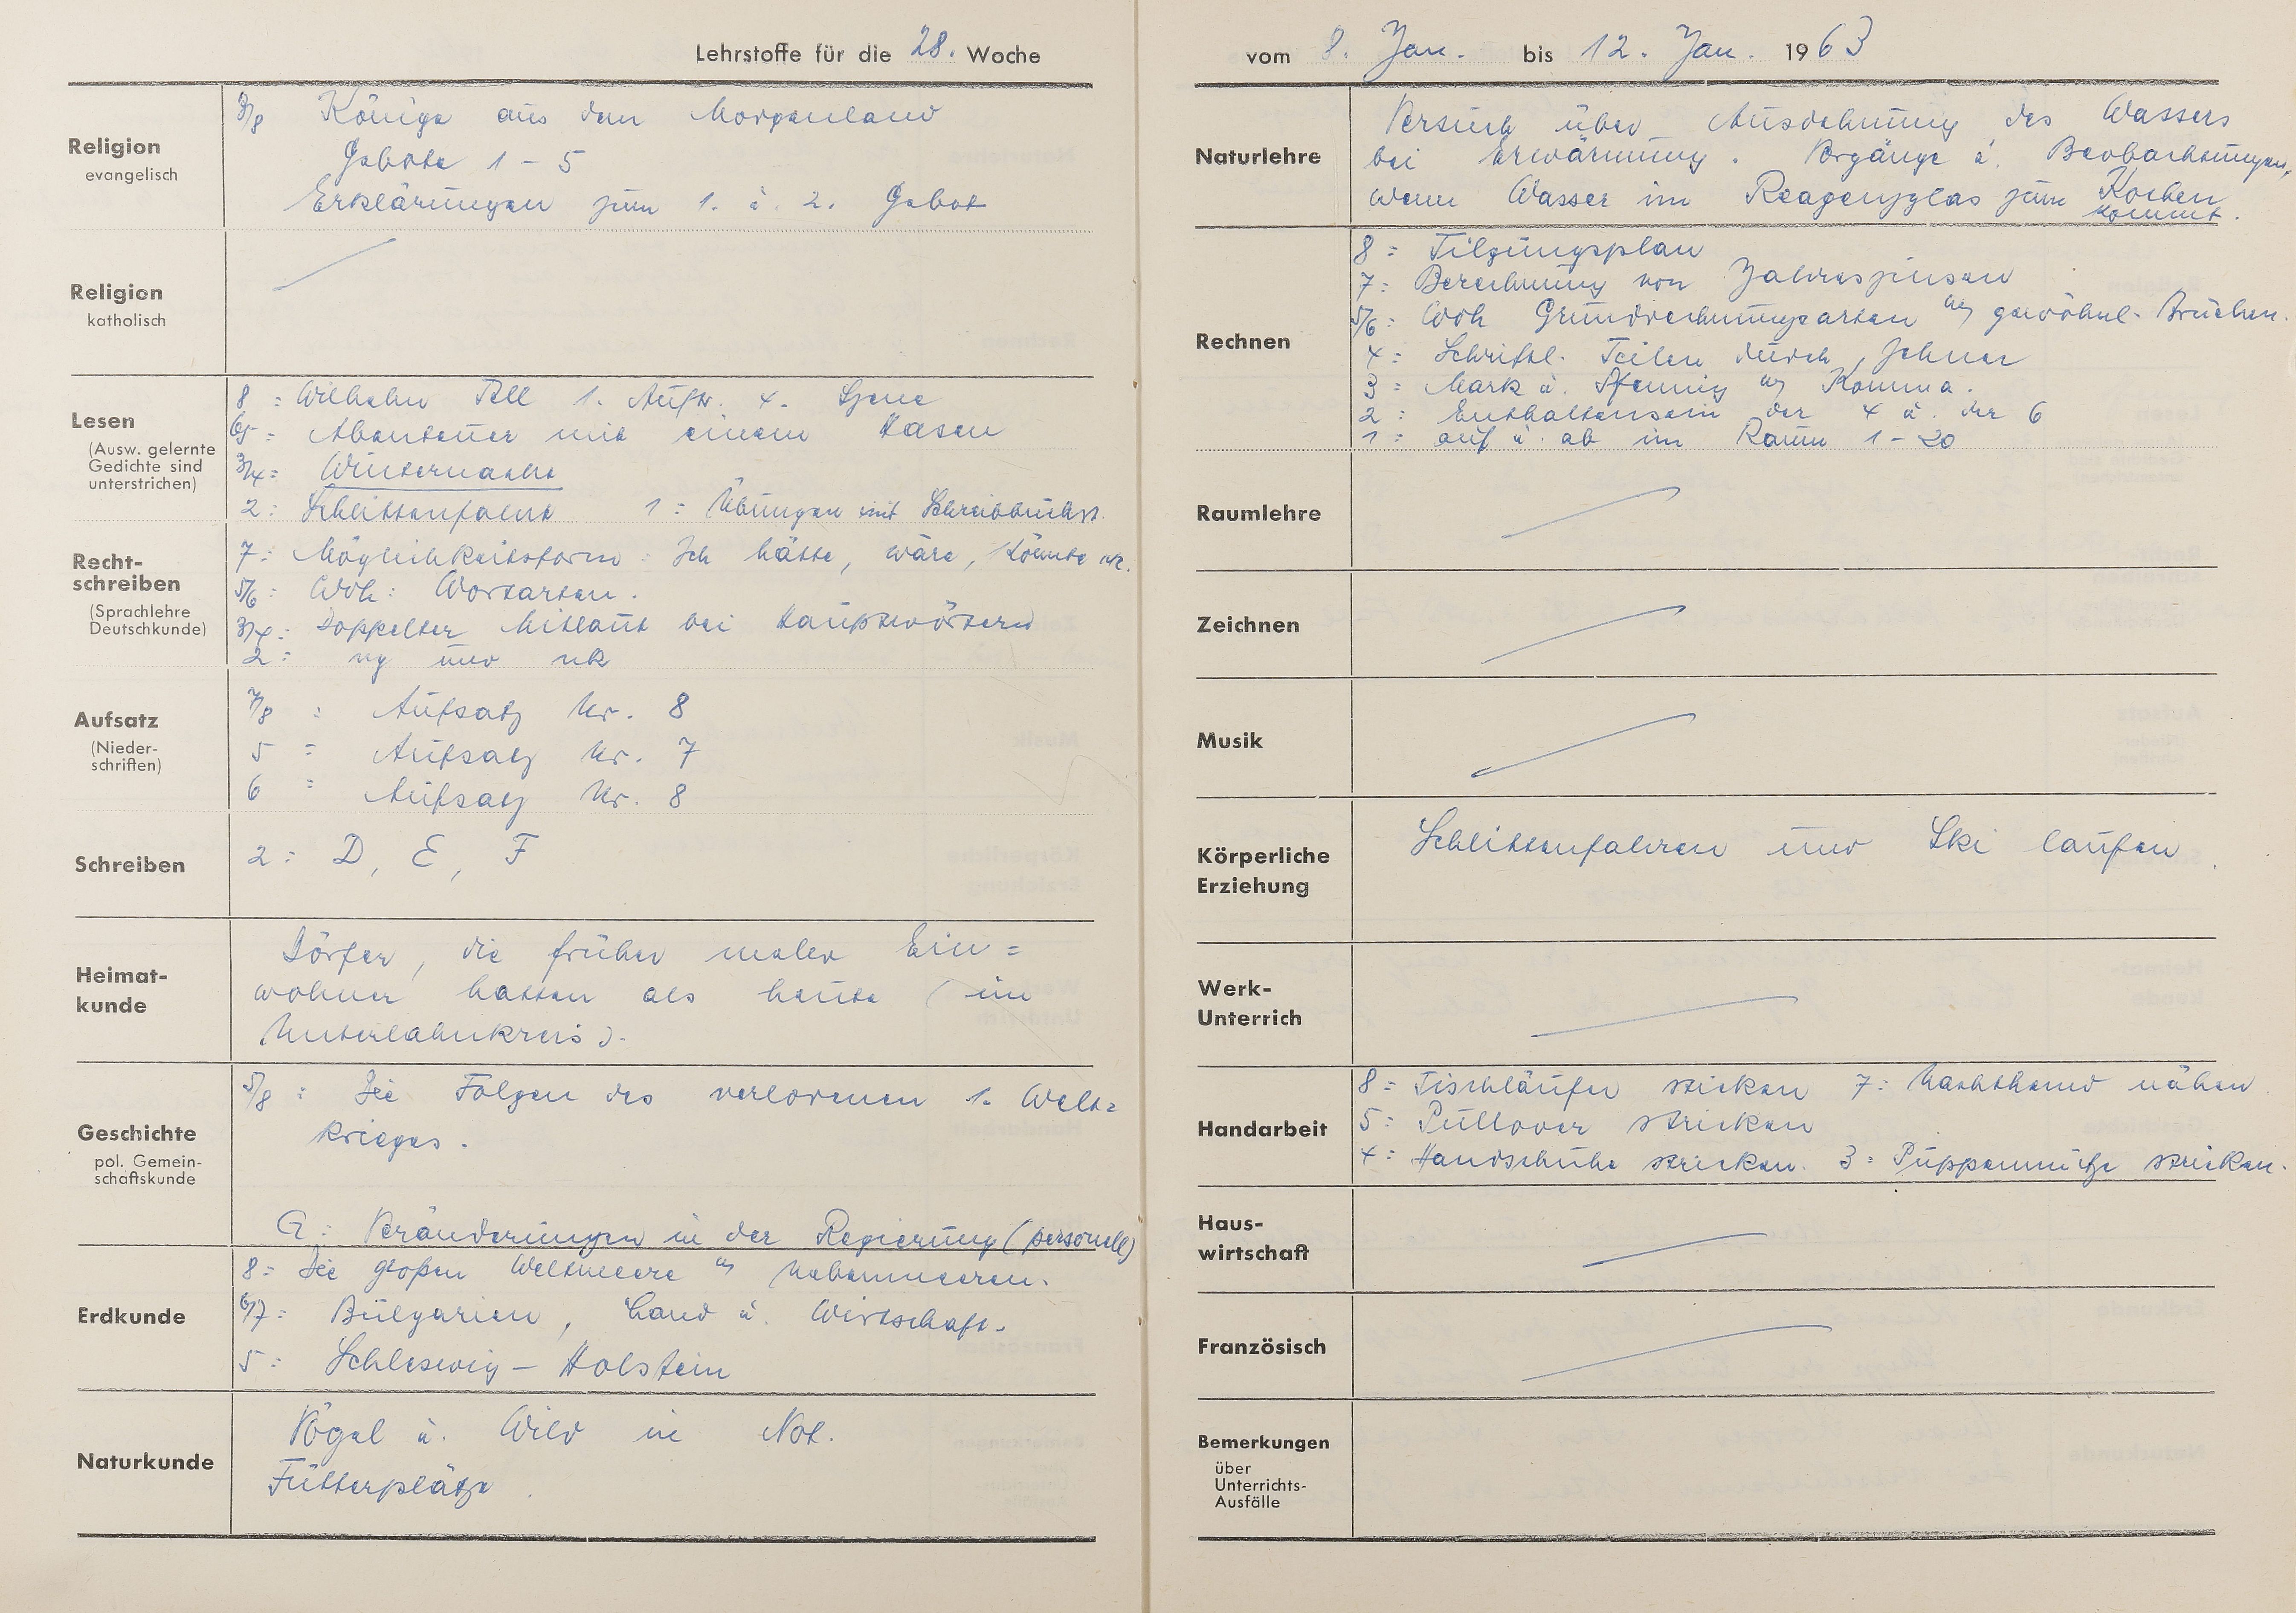 Lehrstoffe für die 28. Woche
Religion
evangelisch
3/8 Könige aus dem Morgenland
Gebote 1 - 5
Erklärungen zum 1. u. 2. Gebot
Religion
katholisch
Lesen
(Ausw. gelernte
Gedichte sind
unterstrichen)
8 : Wilhelm Tell 1. Auftr. 4. Szene
6/5 = Abenteuer mit einem Hasen
3/4 = Winternacht
2 : Schlittenfahrt 1 = Übungen mit Schreibbuchst.
Recht-
schreiben
(Sprachlehre
Deutschkunde)
7 : Möglichkeitsform : Ich hätte, wäre, könnte
5/6 : Wdh : Wortarten.
3/4 : Doppelter Mitlaut bei Hauptwörtern
2 : ng und nk
Aufsatz
(Nieder-
schriften)
7/8 : Aufsatz Nr. 8
5 = Aufsatz Nr. 7
6 = Aufsatz Nr. 8
Schreiben
2 : D, E, F
Heimat-
kunde
Dörfer, die früher mehr Ein=
wohner hatten als heute (im
Unterlahnkreis).
Geschichte
pol. Gemein-
schaftskunde
5/8 : Die Folgen des verlorenen 1. Welt=
krieges.
G : Veränderungen in der Regierung (personell)
Erdkunde
8 = Die großen Weltmeere m Nebenmeeren.
6/7 : Bulgarien, Land u. Wirtschaft.
5 : Schleswig - Holstein
Naturkunde
Vögel u. Wild in Not.
Futterplätze.
vom 8. Jan. bis 12. Jan. 1963
Naturlehre
Versuch über Ausdehnung des Wassers
bei Erwärmung. Vorgänge u. Beobachtungen,
wenn Wasser im Reagenzglas zum Kochen
kommt.
Rechnen
8 = Tilgungsplan
7 : Berechnung von Jahreszinsen
5/6 : Wdh Grundrechnungsarten m gewöhnl. Brüchen.
4 = Schriftl. Teilen durch Zehner
3 = Mark u. Pfennig m Komma.
2 : Enthaltensein der 4 u. der 6
1 = auf u. ab im Raum 1 - 20
Raumlehre
Zeichnen
Musik
Körperliche
Erziehung
Schlittenfahren und Ski laufen.
Werk-
Unterrich
Handarbeit
8 = Tischläufer sticken 7 : Nachthemd nähen
5 : Pullover stricken
4 = Handschuhe stricken. 3 = Puppenmütze stricken.
Haus-
wirtschaft
Französisch
Bemerkungen
über
Unterrichts-
Ausfälle